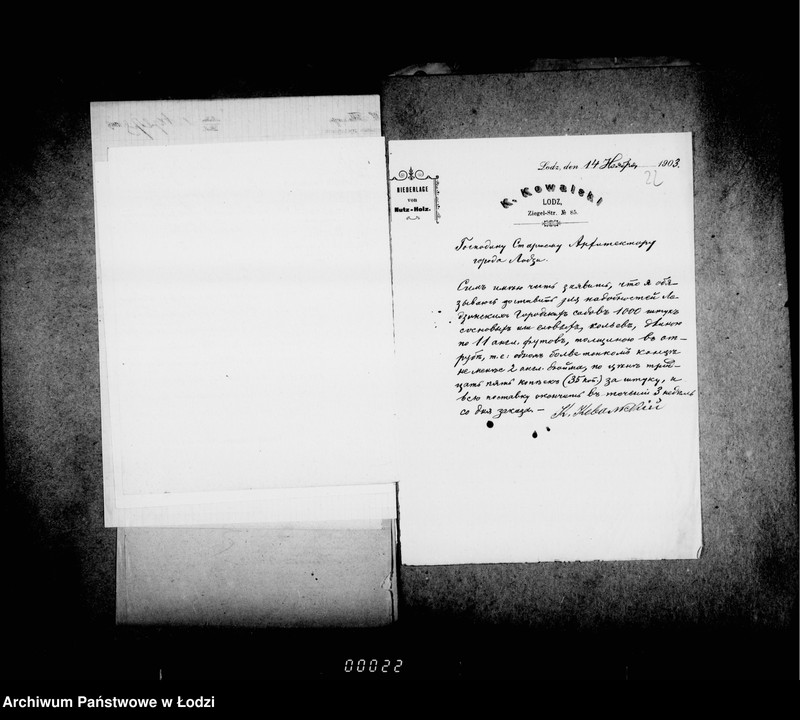 Lodz, den 14 Ноября 1903.
22
NIEDERLAGE
von
Nutz-Holz.
K. Kowalski
LODZ,
Ziegel-Str. № 85.
Господину Старшему Архитектору
города Лодзи.
Симъ имѣю честь заявить, что я обя-
зываюсь доставить для надобностей Ло-
дзинскихъ Городскихъ садовъ 1000 штукъ
сосновыхъ или еловыхъ кольевъ, длиною
по 11 англ. футовъ, толщиною въ от-
рубѣ, т.е: одномъ болѣе тонкомъ концѣ
не менѣе 2 англ. дюйма, по цѣнѣ трид-
цать пять копѣекъ (35 коп) за штуку, и
всю поставку окончить въ теченіи 3 недѣль
со дня заказа. – К. Ковальскій
00022
Archiwum Państwowe w Łodzi